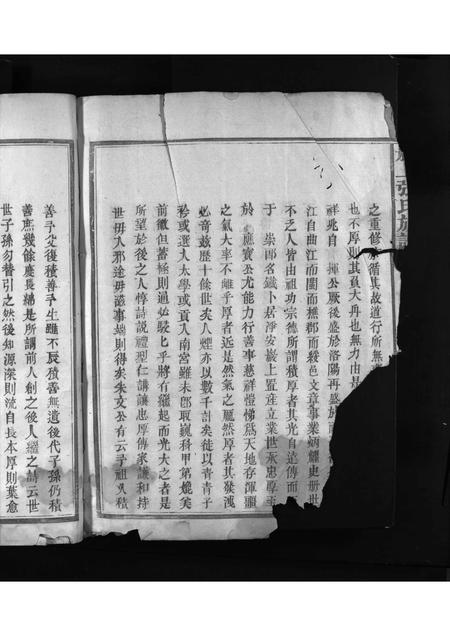 張氏族譜
之重修於循其故道行所無
也不厚則其負大舟也無力由是
祥兆自 揮公厥後盛於洛陽再盛於
江自曲江而閩而撫郡而縣邑文章事業炳耀史册世
不乏人皆由祖功宗德所謂積厚者其光自遠傳而
于 崇郎名鐵卜居淨安巖上置產立業世承忠厚至
於 應寶公尤能力行善事慈祥愷悌為天地存渾灝
之氣大率不離乎厚者近是然氣之厖然厚者其發洩
必奇茲歷十餘世矣人煙亦以數千計矣徒以青青子
衿或選入太學或貢入南宮雖未即取巍科甲第燒矣
前徽但蓄極則過必駸七乎將有繼起而光大之者是
所望於後之人惇詩說禮型仁講讓忠厚傳家謙和持
世毋入邪途毋談事端則得矣朱文公有云子祖父積
善子父復積善子生雖不辰積善無遺後代子孫仍積
善庶幾餘慶長綿是所謂前人創之後人繼之詩云世
世子孫勿替引之然後知源深則流自長本厚則葉愈